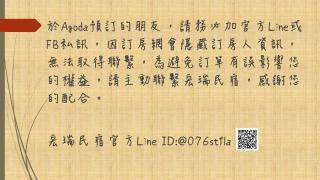 於Agoda預訂的朋友，請務必加官方Line或
FB私訊，因訂房網會隱藏訂房人資訊，
無法取得聯繫，為避免訂單有誤影響您
的權益，請主動聯繫宏瑞民宿，感謝您
的配合。
宏瑞民宿官方Line ID:@076stfla